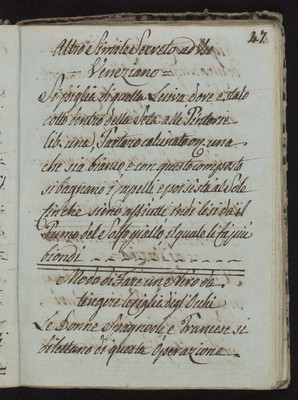 47
Altro Simile Secreto ad Uso
= Veneziano =
Si piglia di quella Lisiva dove è stato
cotto dentro della Seta alle
lib: una, Tartaro calcinato onz: una
che sia bianco, e con questo composto
si bagnano i capelli e poi si sta al Sole
finche siano asciutti, indi li si dà il
Fumo del Solfo giallo il quale li fa più
biondi
Modo di Fare un Nero da
tingere le Ciglia degl'Occhi
Le Donne Spagnuole e Francese si
dilettano di questa Operazione